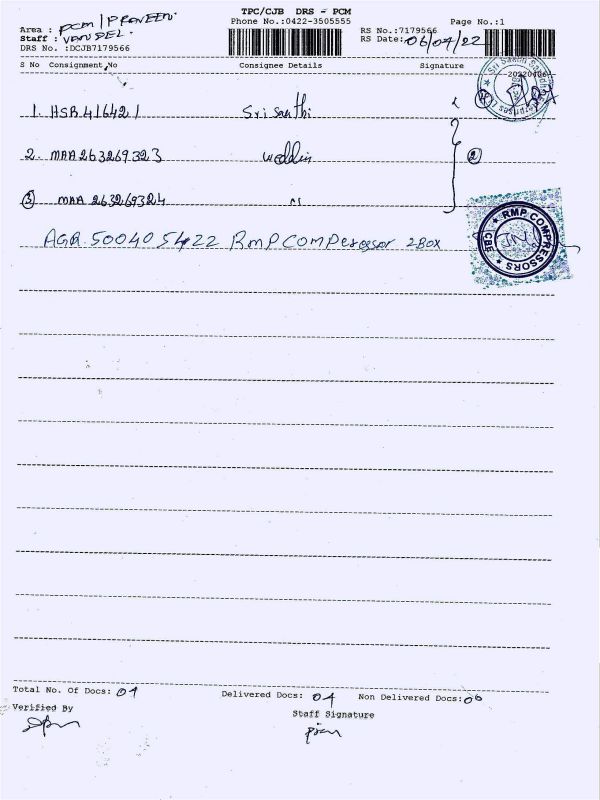 TPC/CJB DRS - PCM
Area : PCM / PRAVEEN.
Phone No.:0422-3505555
Page No.:1
Staff :
RS No.:7179566
DRS No. :DCJB7179566
RS Date: 06/04/22
S No Consignment No Consignee Details Signature
20220406
1. HSR416421 Sri Santhi
2. MAA263269323
3 MAA 263269324 "
AGR.500405422 RMP COMPressor 2BOX
RMP COMPRESSORS
CBE
Total No. Of Docs: 04 Delivered Docs: 04 Non Delivered Docs:00
Verified By
Staff Signature